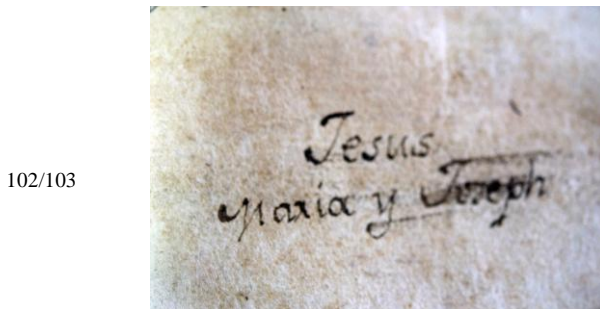 102/103
Jesus
Maria y Joseph